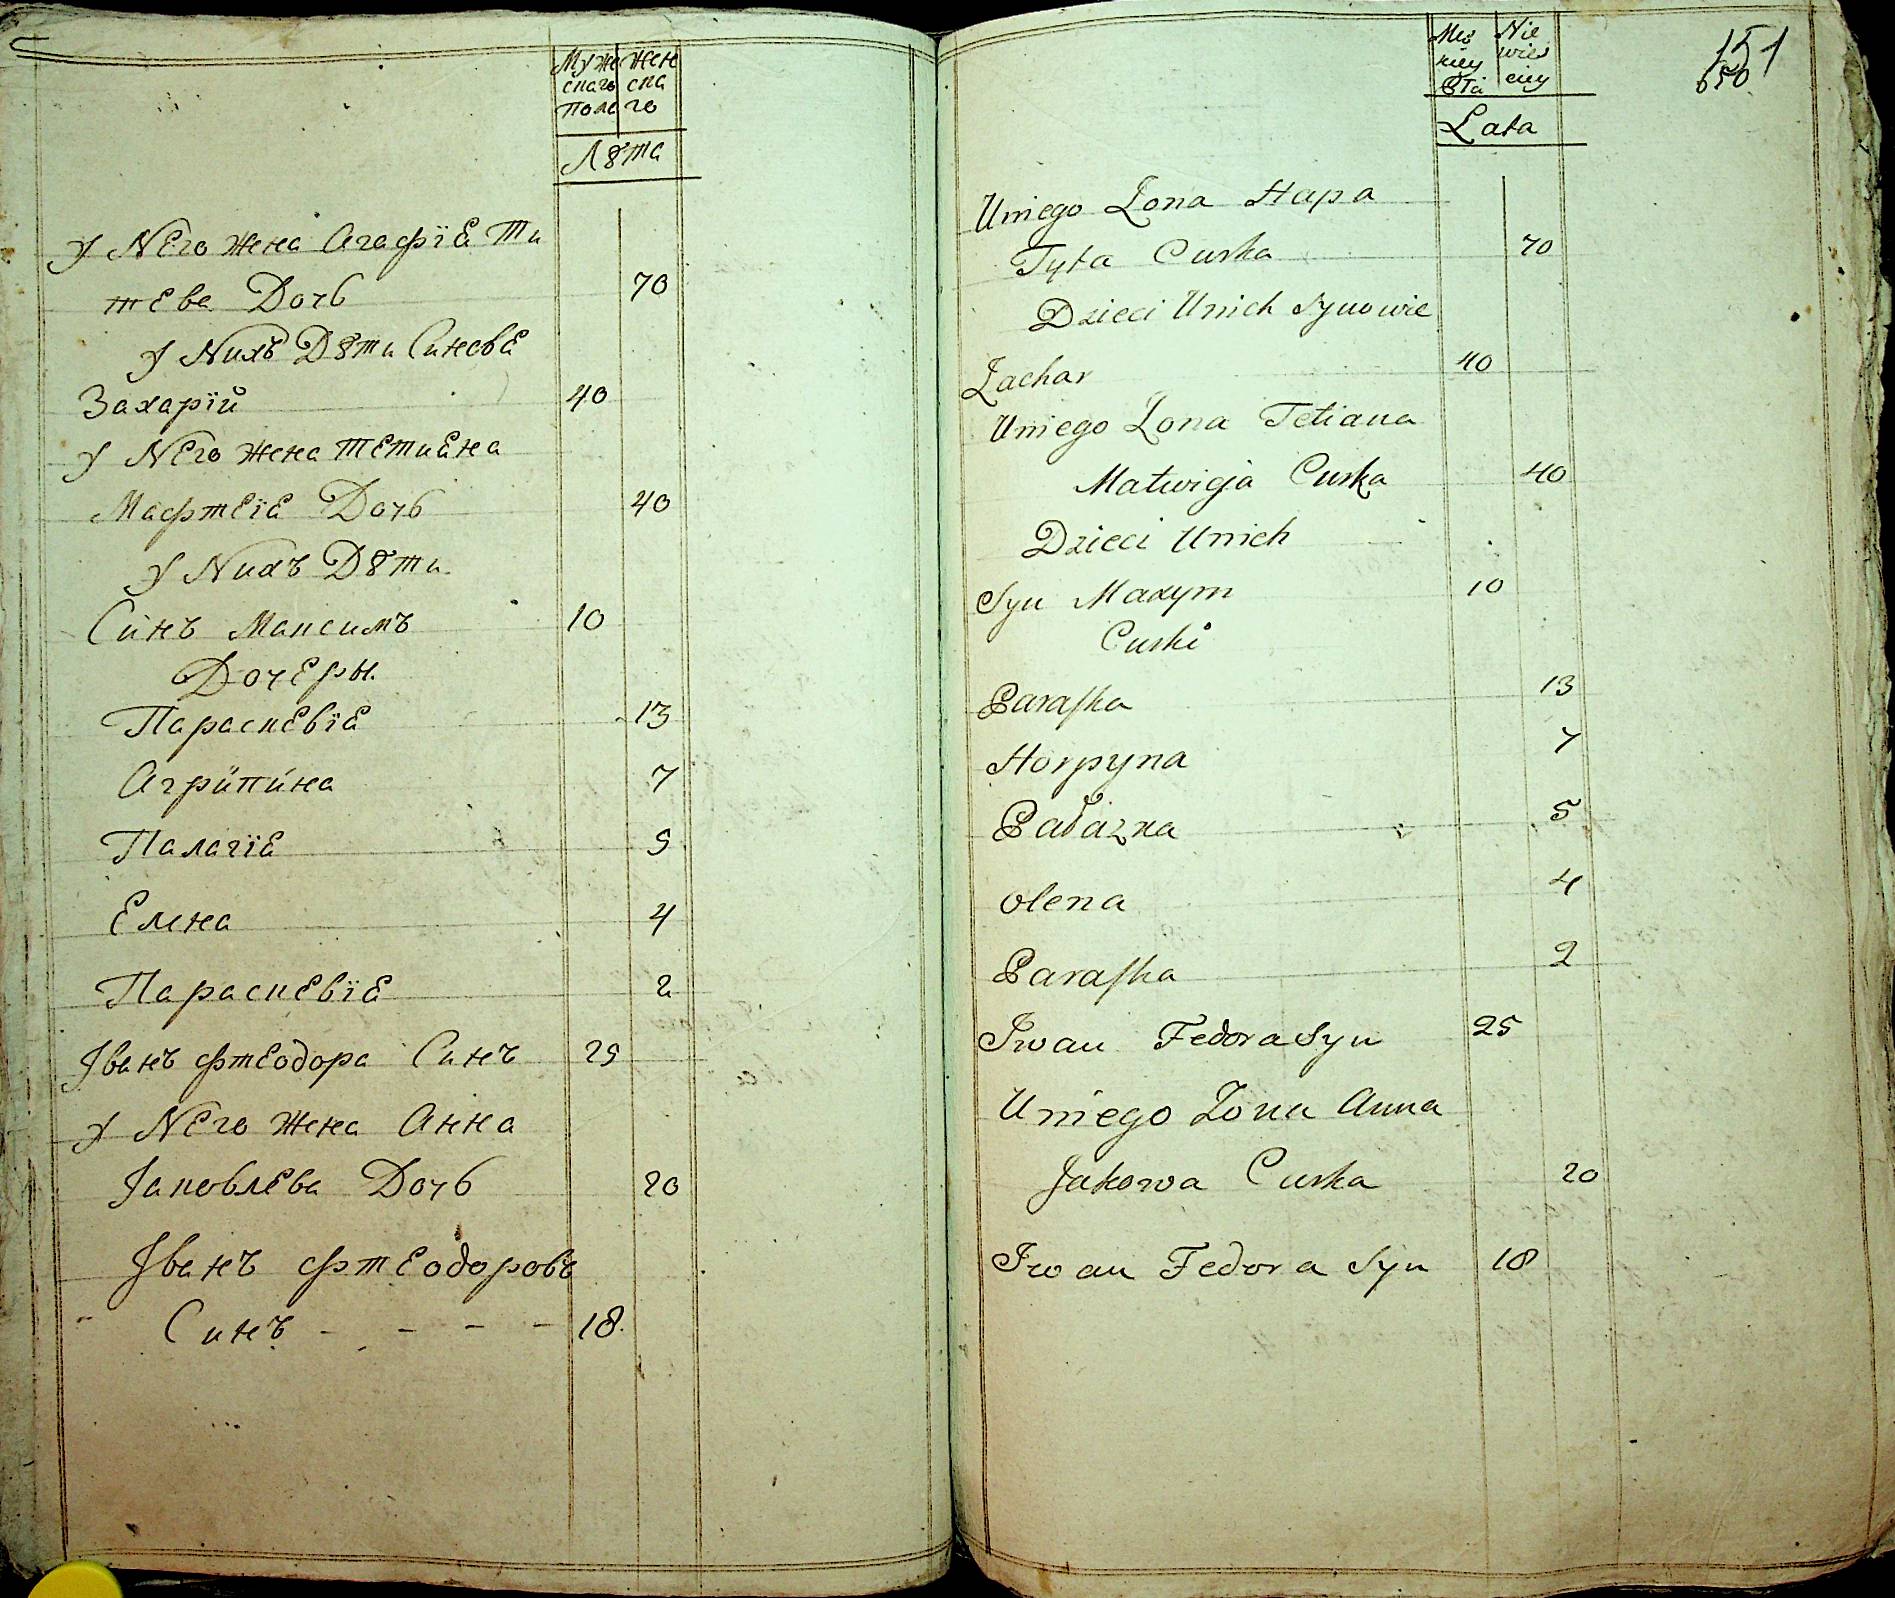 Муже Жен
скаго ска
Поло го
Лѣта
У Него Жена Агафїя Ти
това Дочь 70
У Нихъ Дѣти Синовя
Захарїй 40
У Него Жена Тетиана
Мафтеїя Дочь 40
У Нихъ Дѣти
Синъ Максимъ 10
Дочеры
Параскевїя 13
Агрипина 7
Палагїя 5
Елена 4
Параскевїя 2
Іванъ Фтеодора Синъ 25
У Него Жена Анна
Іаковлева Дочь 20
Іванъ Фтеодоровъ
Синъ - - - - 18
151
650
Lata
Uniego Żona Hapa
Tyta Curka 70
Dzieci Unich Synowie
Zachar 40
Uniego Żona Tetiana
Matwieja Curka 40
Dzieci Unich
Syn Maxym 10
Curki
Paraska 13
Horpyna 7
Pałazna 5
Olena 4
Paraska 2
Iwan Fedora Syn 25
Uniego Żona Anna
Jakowa Curka 20
Iwan Fedora Syn 18